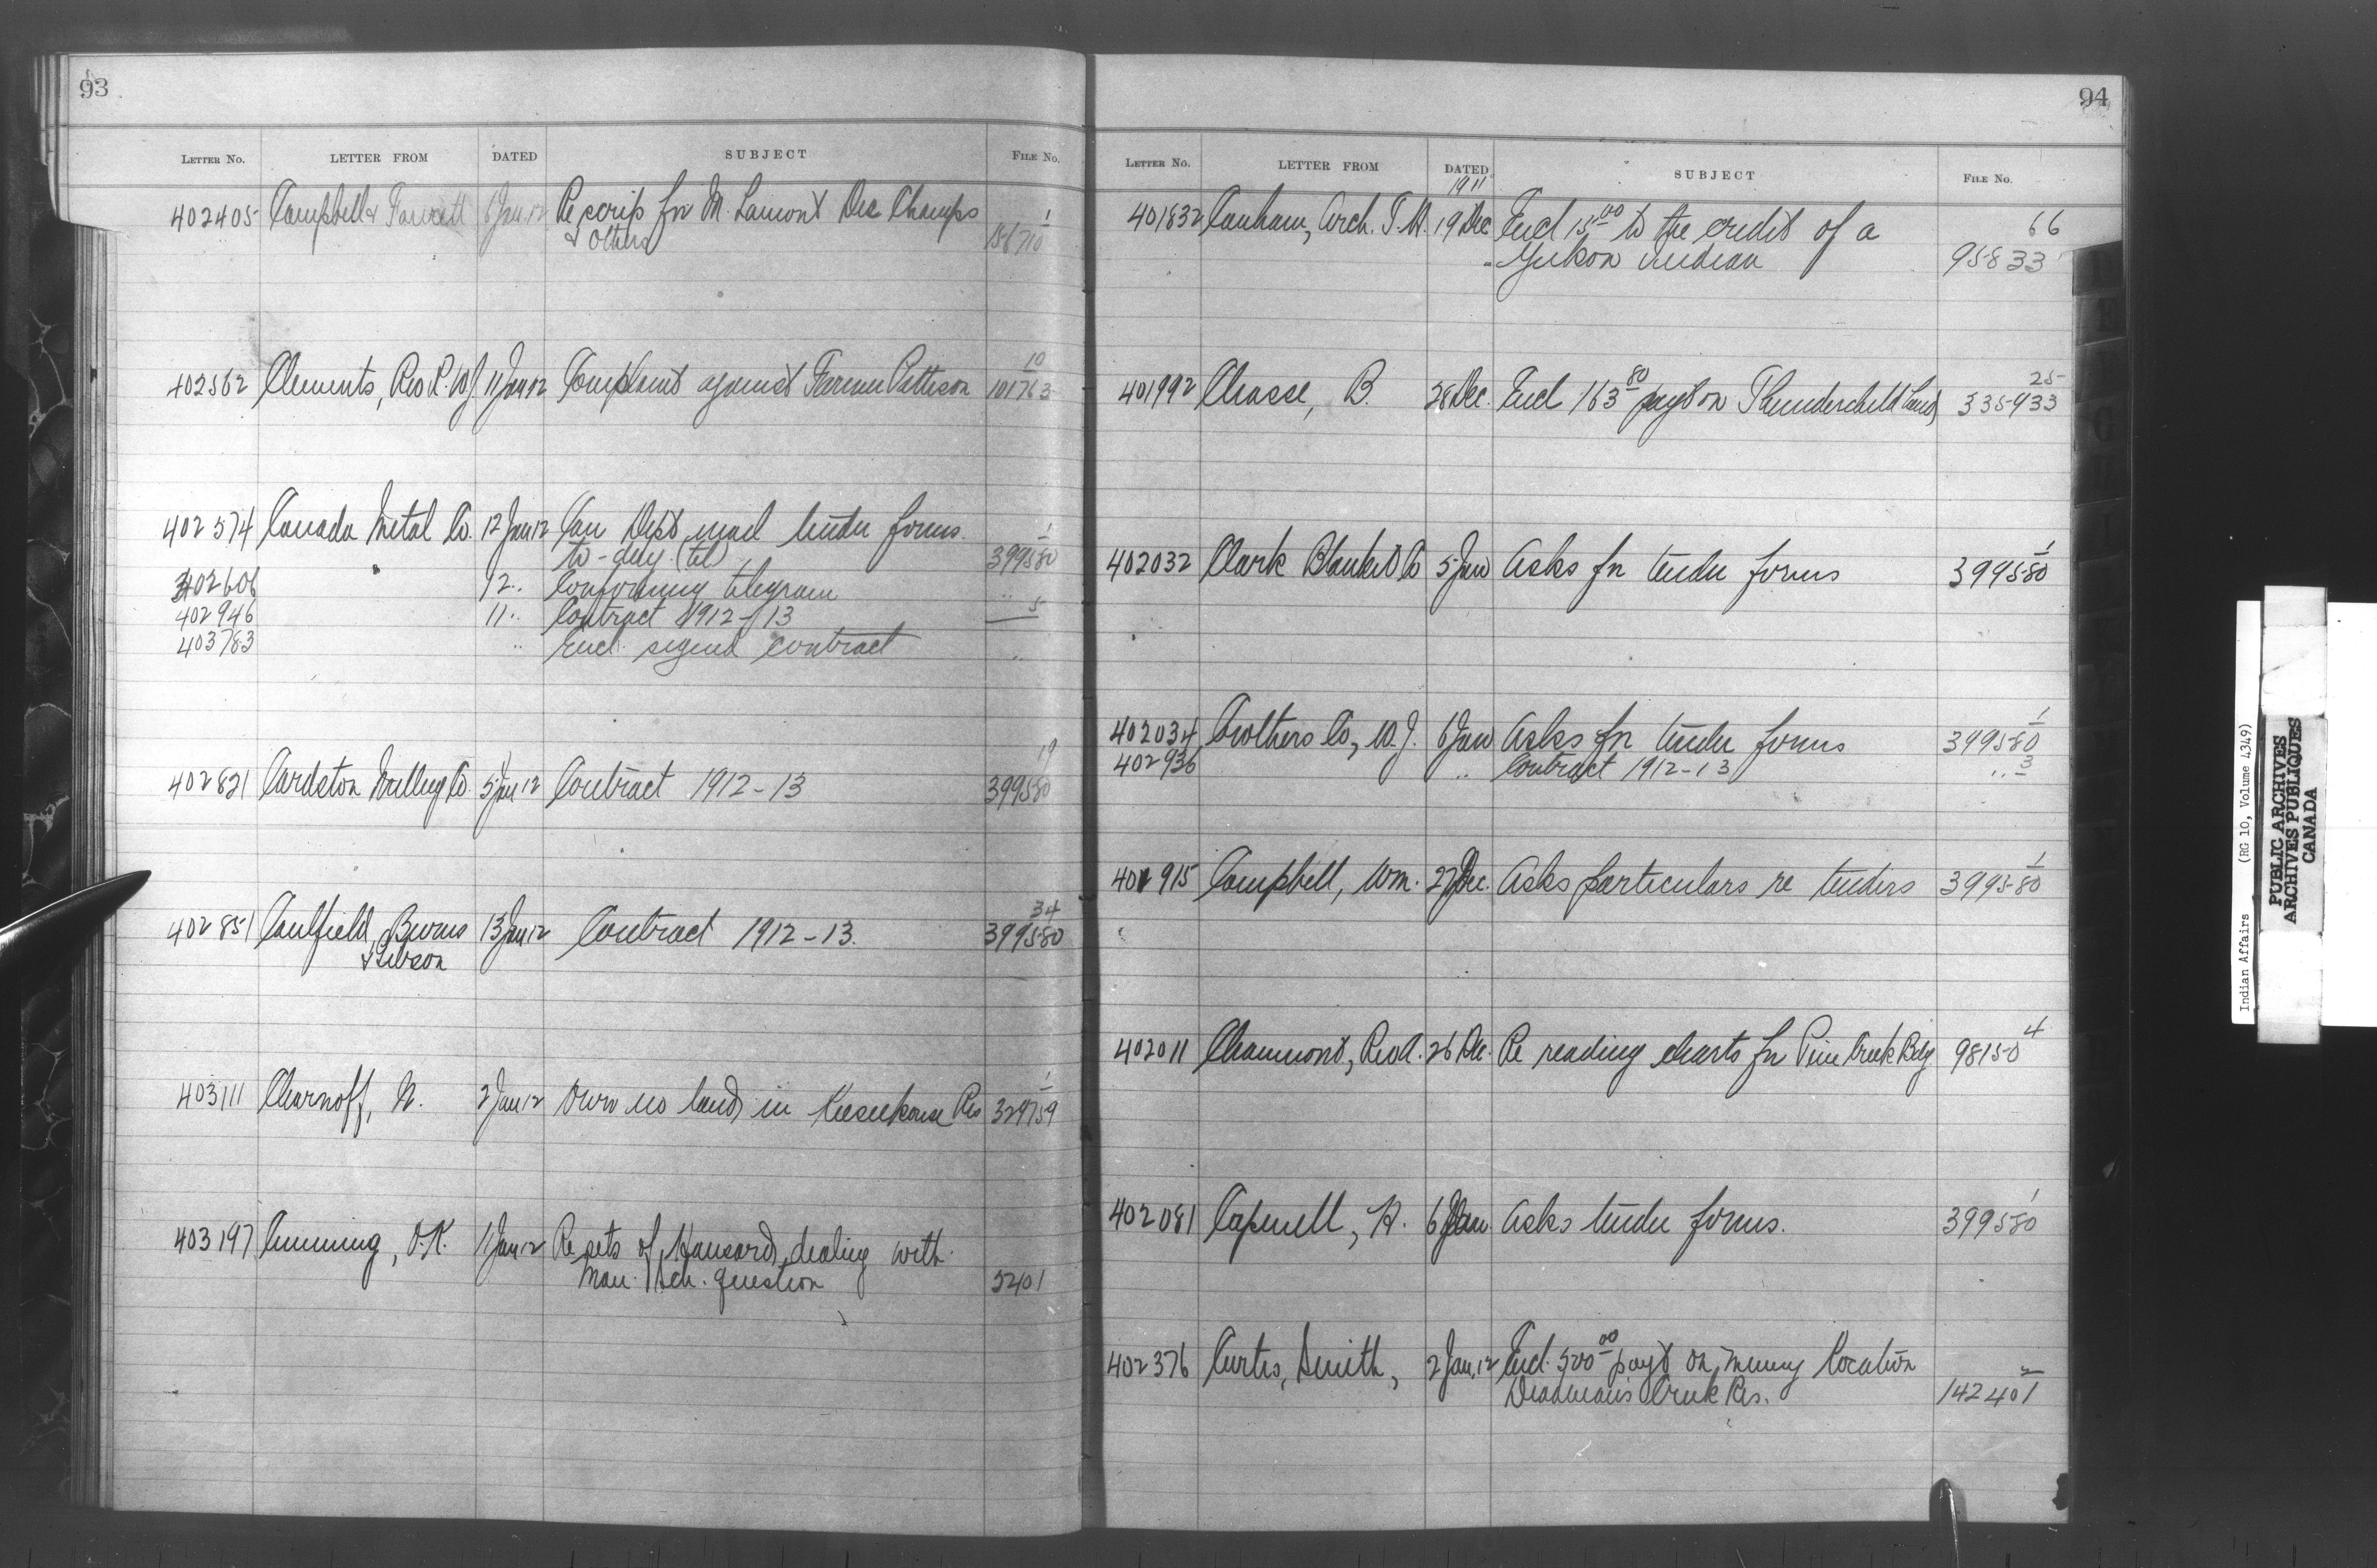 93
LETTER No. LETTER FROM DATED SUBJECT FILE No.
402405 Campbell & Fawcett 6 Jan 12 Re scrip for M. Lamont Des Champs 1
& Others 156710
10
402562 Clements, Rev R. W. J. 11 Jan 12 Complaint against Farmer Pattison 101763
402574 Canada Metal Co. 12 Jan 12 Can Dept mail tender forms 1
to-day (tel) 399580
402606 12 .. Confirming telegram ..
402946 11 .. Contract 1912-13 5
403783 .. Encl. signed contract ..
19
402821 Cardston Milling Co. 5 Jan 12 Contract 1912-13 399580
34
402851 Caulfield, Burns 13 Jan 12 Contract 1912-13. 399580
& Gibson
1
403111 Charnoff, N. 2 Jan 12 Own no land in Keeseekouse Res
403197 Cumming, O.K. 11 Jan 12 Re sets of Hansard dealing with
Man. Sch. question 5401
94
LETTER No. LETTER FROM DATED SUBJECT FILE No.
1911
401832 Canham, Arch. T. H. 19 Dec Encl 15.00 to the credit of a 66
Yukon Indian 95833
25
401992 Chasse, B. 28 Dec. Encl 163 80 payt on Thunderchild Land 335933
1
402032 Clark Blanket Co 5 Jan Asks for tender forms 399580
1
402034 Crothers Co, W. J. 6 Jan Asks for tender forms 399580
402936 .. Contract 1912-13 .. 3
1
401915 Campbell, Wm. 27 Dec. Asks particulars re tenders 399580
4
402011 Chaumont, Rev A. 26 Dec. Re reading charts for Pine Creek Bdg 98150
1
402081 Capnell, H. 6 Jan. Asks tender forms. 399580
402376 Curtis, Smith, 2 Jan, 12 Encl. 500 00 payt on mining location 2
Deadman's Creek Res. 142401
Indian Affairs (RG 10, Volume 4349)
PUBLIC ARCHIVES
ARCHIVES PUBLIQUES
CANADA